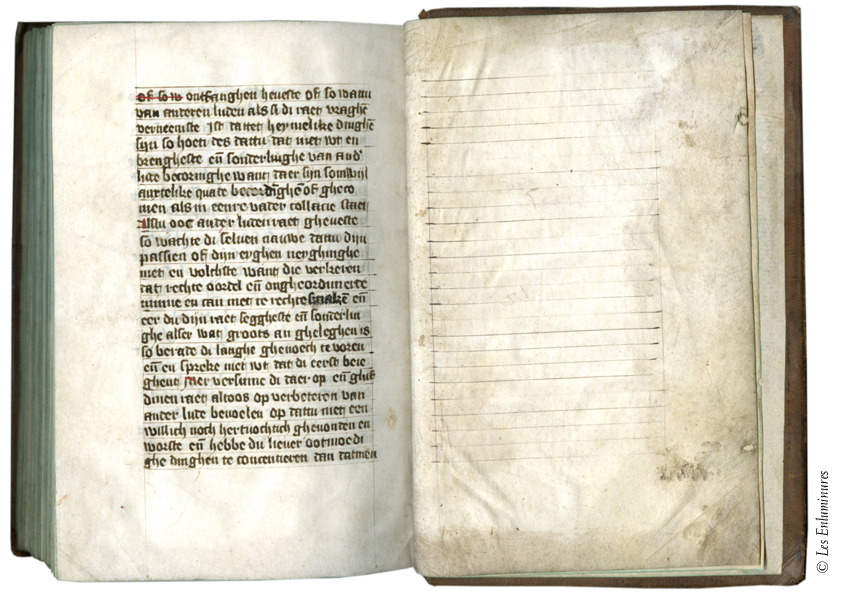 of so w ontfanghen heueste of so wattu
van anderen luden als si di raet vraghē
verneemste Ist dattet heymelike dinghē
sijn so hoet des dattu dat niet wt en
brengheste eñ sonderlinghe van and'
lude becoringhe want daer sijn somwijl
anxtelike quade becoringhē of gheco
men als in eenre vader collacie staet
Alstu ooc ander luden raet gheueste
so wachte di seluen nauwe dattu dijn
passien of dijn erghen nerghinghe
niet en volchste want die verkeren
dat rechte oordel eñ ongheordineerde
minne en can niet te rechte smakē eñ
eer du dijn raet seggheste eñ sonderlin
ghe alser wat groots an gheleghen is
so berade di langhe ghenoech te voren
eñ en spreke niet wt dat di eerst beie
ghent Mer versinne di daer op eñ
dinen raet altoos op verbeteren van
ander lude beuoelen op dattu niet een
willich noch hertnochtich gheuonden en
worste eñ hebbe du lieuer ootmoedi
ghe dinghen te concentieren dan datmen
© Les Enluminures